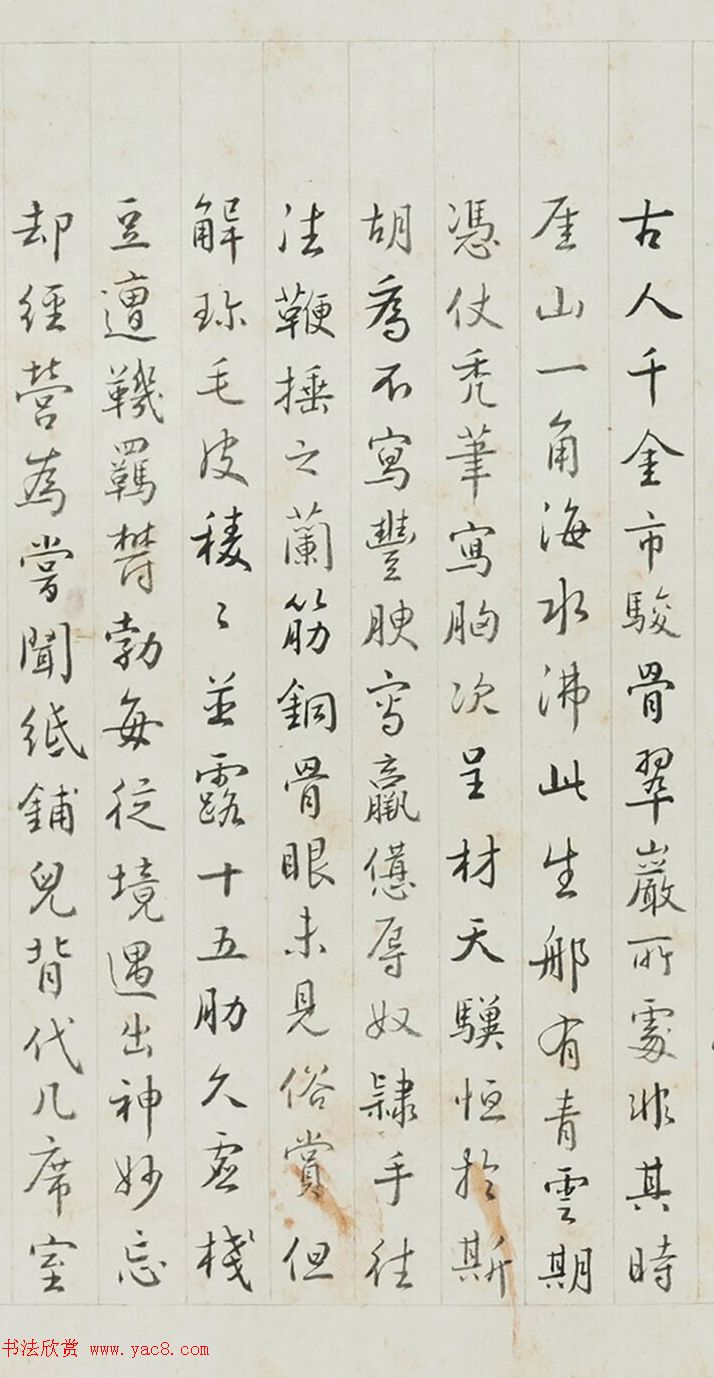 古人千金市駿骨翠巖所處非其時
厓山一角海水沸此生那有青雲期
憑仗禿筆寫胸次呈材天驥恒於斯
胡為不寫豐腴寫羸憊辱奴隸手往
往鞭捶之蘭筋銅骨眼未見俗賞但
解珍毛皮稜〻並露十五肋久虛棧
豆遭鞿羈欝勃每從境遇出神妙忘
却經營為嘗聞紙鋪兒背代几席室
书法欣赏 www.yac8.com